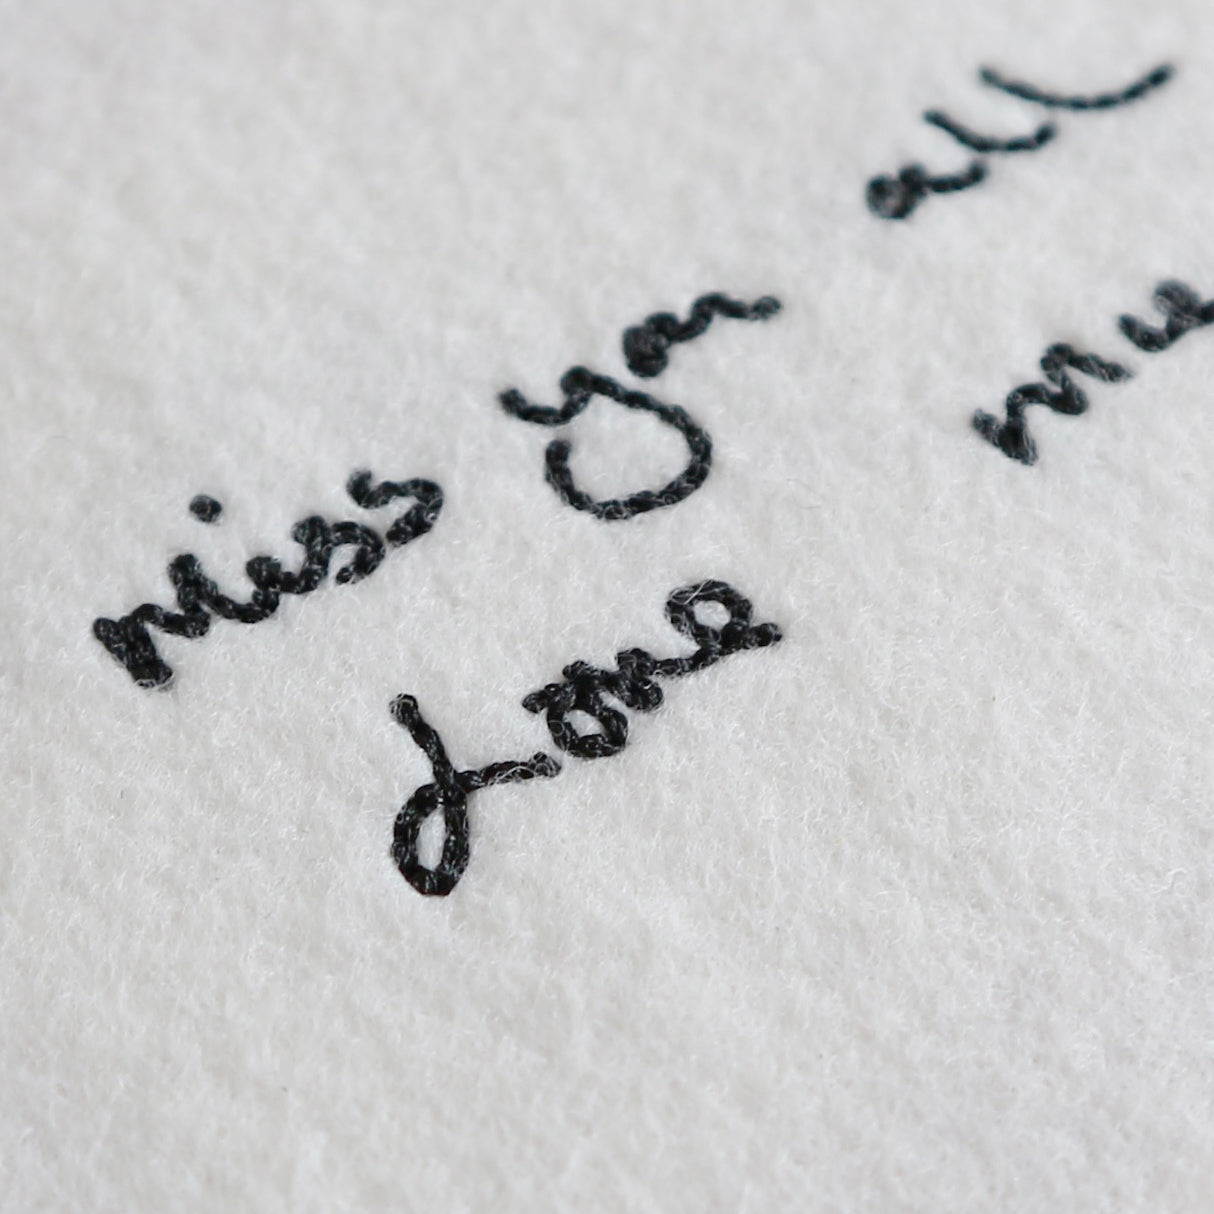 miss you all
Love